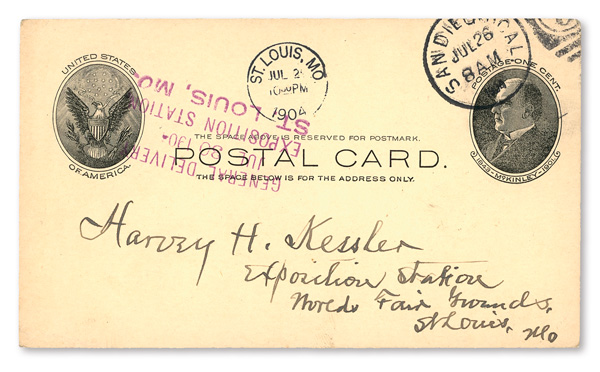 UNITED STATES
OF AMERICA.
ST. LOUIS, MO
JUL 2
10 PM
1904
SAN DIEGO, CAL
JUL 26
8 AM
POSTAGE ONE CENT.
1843-MCKINLEY-1901
GENERAL DELIVERY
JUL 30
EXPOSITION STATION
ST. LOUIS, MO.
THE SPACE ABOVE IS RESERVED FOR POSTMARK.
POSTAL CARD.
THE SPACE BELOW IS FOR THE ADDRESS ONLY.
Harvey H. Kessler
Exposition Station
Worlds Fair Grounds,
St Louis, Mo